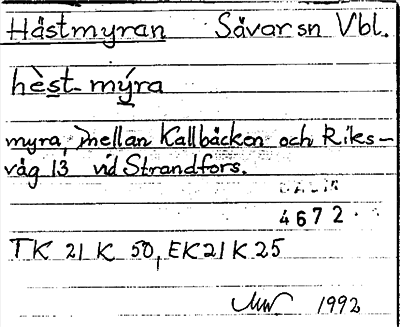 Hästmyran Sävar sn Vbl.
hèst-mýra
myra, mellan Kallbäcken och Riks-
väg 13 vid Strandfors.
4672.
TK 21 K 50, EK 21 K 25
1992